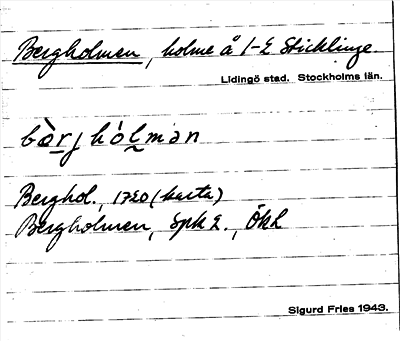 Bergholmen, holme å 1-2 Sticklinge.
Lidingö stad. Stockholms län.
bàrj hólmən
Berghol., 1720 (karta)
Bergholmen, Spk 2., ÖkL
Sigurd Fries 1943.